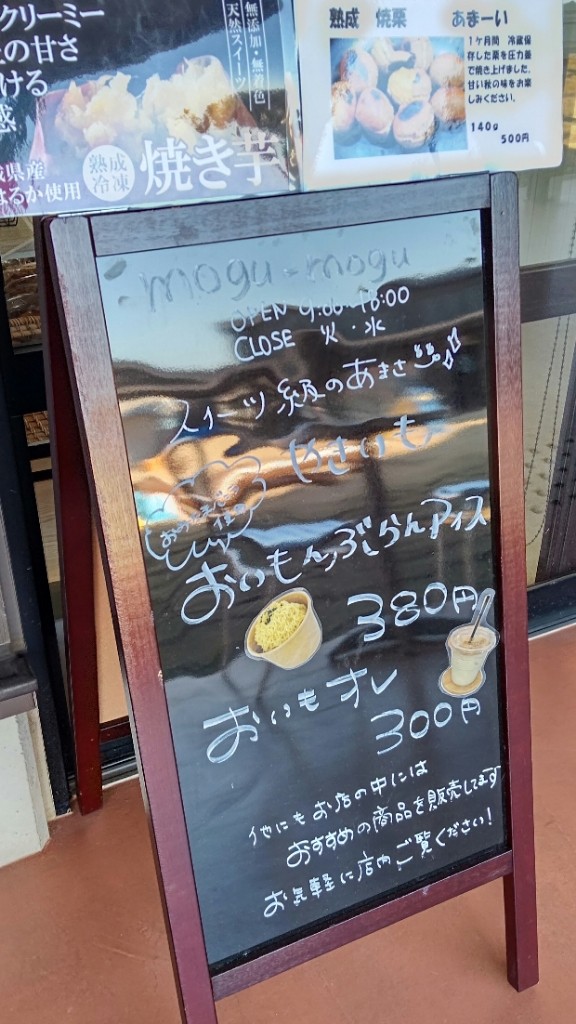 クリーミー
の甘さ
ける
感
無添加・無着色
天然スイーツ
県産
はるか使用
熟成
冷凍
焼き芋
熟成 焼栗 あまーい
1ケ月間 冷蔵保
存した栗を圧力釜
で焼き上げました。
甘い秋の味をお楽
しみください。
140g
500円
mogu-mogu
OPEN 9:00-18:00
CLOSE 火・水
スイーツ級のあまさ
やきいも
おいもんぶらんアイス
380円
おいもオレ
300円
他にもお店の中には
おすすめの商品を販売してます
お気軽に店内ご覧ください!